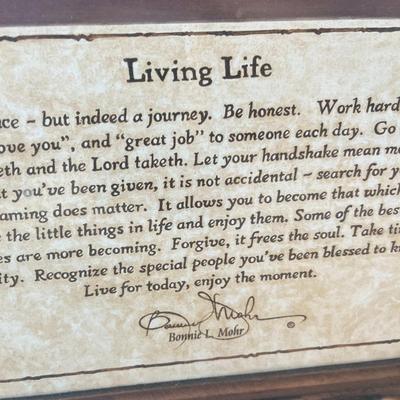 Living Life
ce – but indeed a journey. Be honest. Work hard
ove you", and "great job" to someone each day. Go
eth and the Lord taketh. Let your handshake mean mo
t you've been given, it is not accidental – search for yo
aming does matter. It allows you to become that which
the little things in life and enjoy them. Some of the best
es are more becoming. Forgive, it frees the soul. Take ti
ity. Recognize the special people you've been blessed to k
Live for today, enjoy the moment.
Bonnie L. Mohr ©
Bonnie L. Mohr